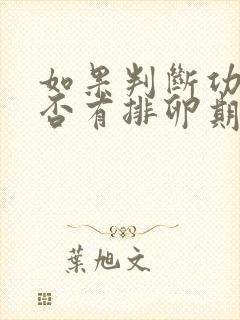 如果判斷功
否有排卵期
葉旭文